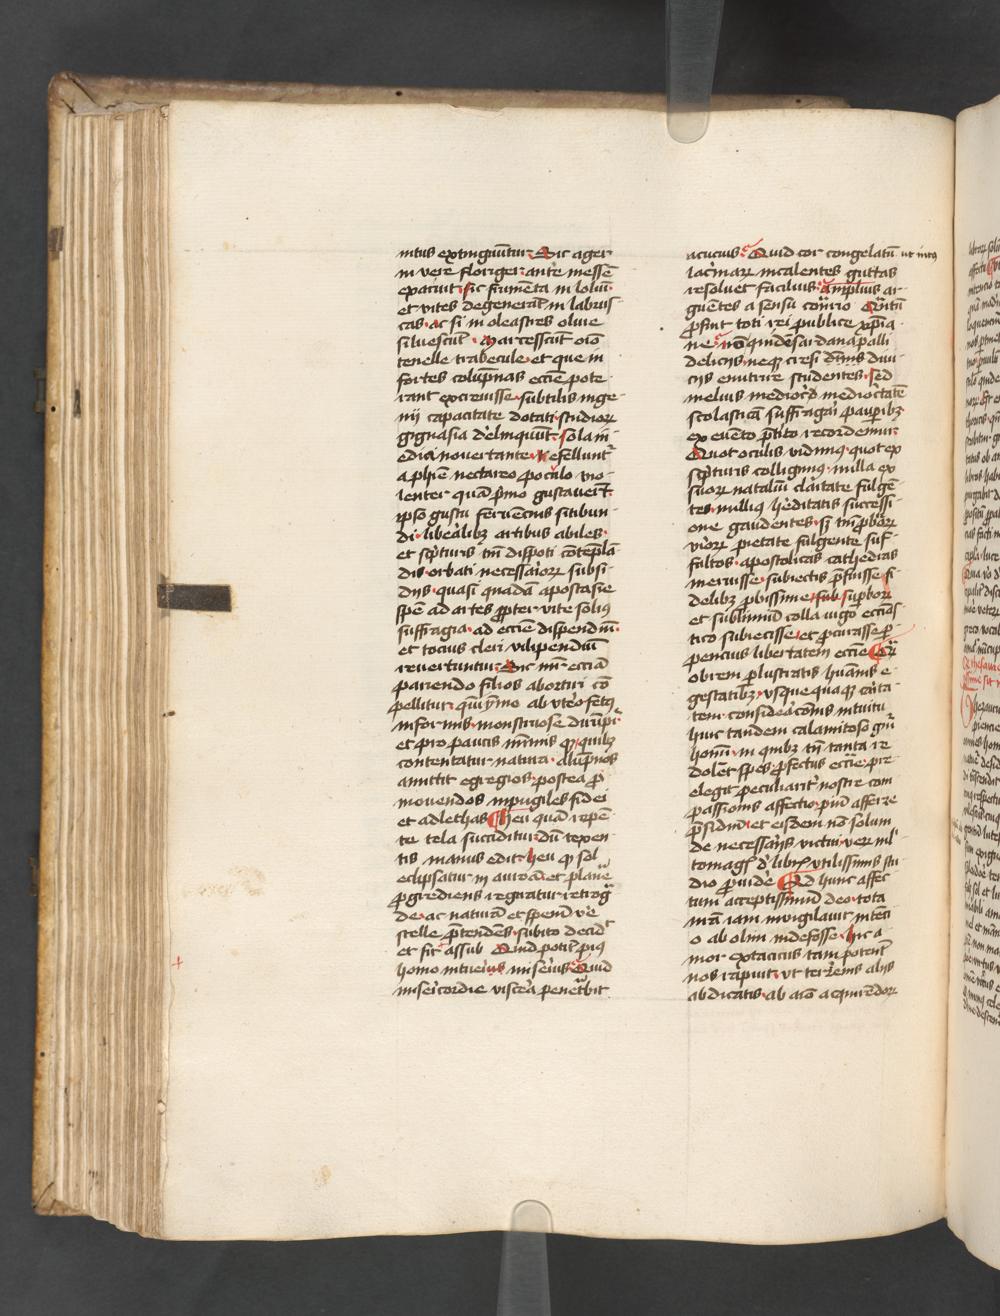 intus extinguūtur Sic ager
in vere floriger ante messē
exaruit sic frumēta in loliū
et vites degenerāt in labrus-
cas ac si in oleastres oliue
siluescūt marcescūt oīo
tenelle trabecule et que in
fortes colūpnas eccīe pote-
rant excreuisse subtilis inge-
nij capacitate dotati studiorꝝ
gignasia delinquūt sola in-
edia nouertante refellunt᷑
a phīe nectareo poculo vio-
lenter quā p̄mo gustauerīt
ipso gustu feruencius sitibun-
di libeˀalibꝫ artibus abiles
et scpturis tm̄ dispoti cōtēpla-
dis orbati necessaiorꝝ subsi-
dijs quasi quadā apostasie
spē ad artes ꝓpter vite solius
suffragia ad eccīe dispendiū
et tocius cleri vilipendiū
reuertuntur Sic mr̄ eccīa
pariendo filios aborturi cō
pellitur qui ymo ab utero fetus
informis monstruose dirūpit᷑
et pro paucis mīmis qꝫ quibꝫ
contentatur natura alūpnos
amittit egregios postea ꝓ
mouendos in pugiles fidei
et adlethas heu quā repē-
te tela succiditur dū texen-
tis manus edit heu qꝫ sol
eclipsatur in aurora et planeta
ꝓgrediens regiratur retrogra
de ac naturā et speciē ve
stelle p̄tendēs subito decidit
et fit assub Quid potīt pius
homo intueri miserius Quid
misericordie viscera penetrabit
acucius Quid cor congelatū ut incus
lacīmarꝝ in calentes guttas
resoluet facilius amplius ar-
guētes a sensu cōrio Q̄ntū
ꝓfuit toti rei publice xpīa-
ne nō quidē sardanapalli
delicijs neqꝫ cresi diuis diui-
cijs enutrire studentes sed
melius mediocrē mediocitatē
scolasticā suffragāi pauperibꝫ
ex euēto p̄tito recordemur
Quot oculis vidimꝰ quot ex
scpturis colligimꝰ nulla ex
suorꝝ nataliū claritate fulgē-
tes nullius heˀditatis successi-
one gaudentes sꝫ tm̄ ꝓborꝝ
virorꝝ pietate fulgente suf-
fultos apostolicas cathedras
meruisse subiectis p̄fuisse fi-
delibꝫ ꝓbissime sub supborꝝ
et sublimiū colla iugo eccīas-
tico subiecisse et ꝓcurasse ꝓ-
pencius libertatem eccīe Qr̄
obrem perlustratis humānis e-
gestatibꝫ usquequaqꝫ carita-
tem consideracōnis intuitu
huic tandem calamitoso gn̄i
hominū in quibꝫ tn̄ tanta re-
dolēt spes ꝓfectus eccīe pre-
elegit peculiarit᷑ nostre com
passionis affectio piū afferre
p̄sidiū et eisdem nō solum
de necessarijs victui verum ml᷑-
tomagꝭ de librꝭ vtilissimis stu
dio ꝓuidē Ad hunc affec-
tum acceptissimū deo tota
nr̄a iam inuigilauit intēci
o ab olim indefesse hic a
mor extaticus tam potent᷑
nos rapuit ut terrenis alijs
abdicatis ab aīo acquirēdorꝝ